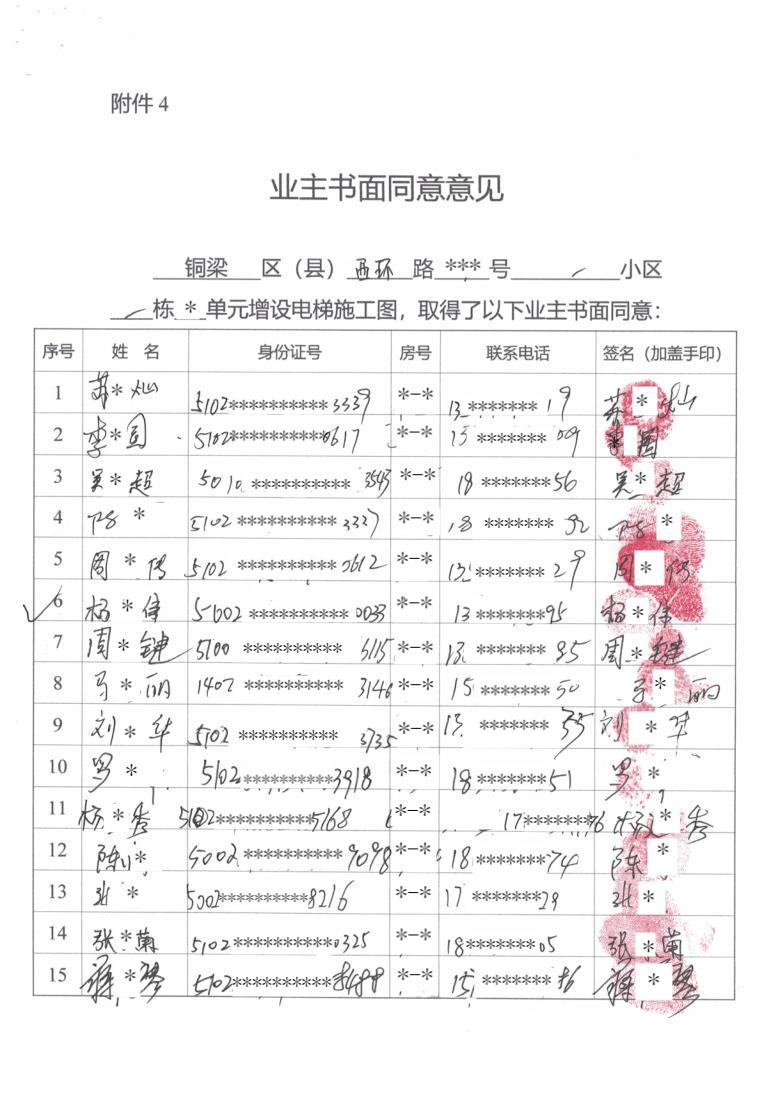 附件4
业主书面同意意见
铜梁 区（县）西环 路 *** 号 小区
栋 * 单元增设电梯施工图，取得了以下业主书面同意：
序号 姓 名 身份证号 房号 联系电话 签名（加盖手印）
1 苏*灿 5102**********3339 *-* 13*******19 苏*灿
2 李*国 5102**********0617 *-* 13*******09 李*国
3 吴*超 5010**********3543 *-* 18*******56 吴*超
4 * 5102**********3337 *-* 18*******92 *
5 周*伟 5102**********0612 *-* 13*******29 周*伟
6 杨*伟 5002**********0033 *-* 13*******95 杨*伟
7 周*键 5100**********5115 *-* 13*******85 周*键
8 马*丽 1402**********3146 *-* 15*******50 马*丽
9 刘*华 5102**********3735 *-* 13*******35 刘*华
10 罗* 5102**********3918 *-* 18*******51 罗*
11 杨*秀 5102**********5168 *-* 17*******76 *秀
12 陈* 5002**********9098 *-* 18*******74 陈*
13 张* 5002**********8216 *-* 17*******29 张*
14 张*兰 5102**********0325 *-* 18*******05 张*兰
15 蒋*琴 5102********** *-* 15*******86 蒋*琴